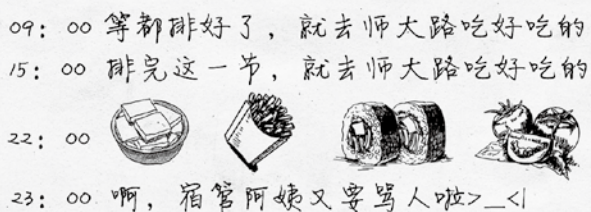 09：00 等都排好了，就去师大路吃好吃的
15：00 排完这一节，就去师大路吃好吃的
22：00
23：00 啊，宿管阿姨又要骂人啦>__<|